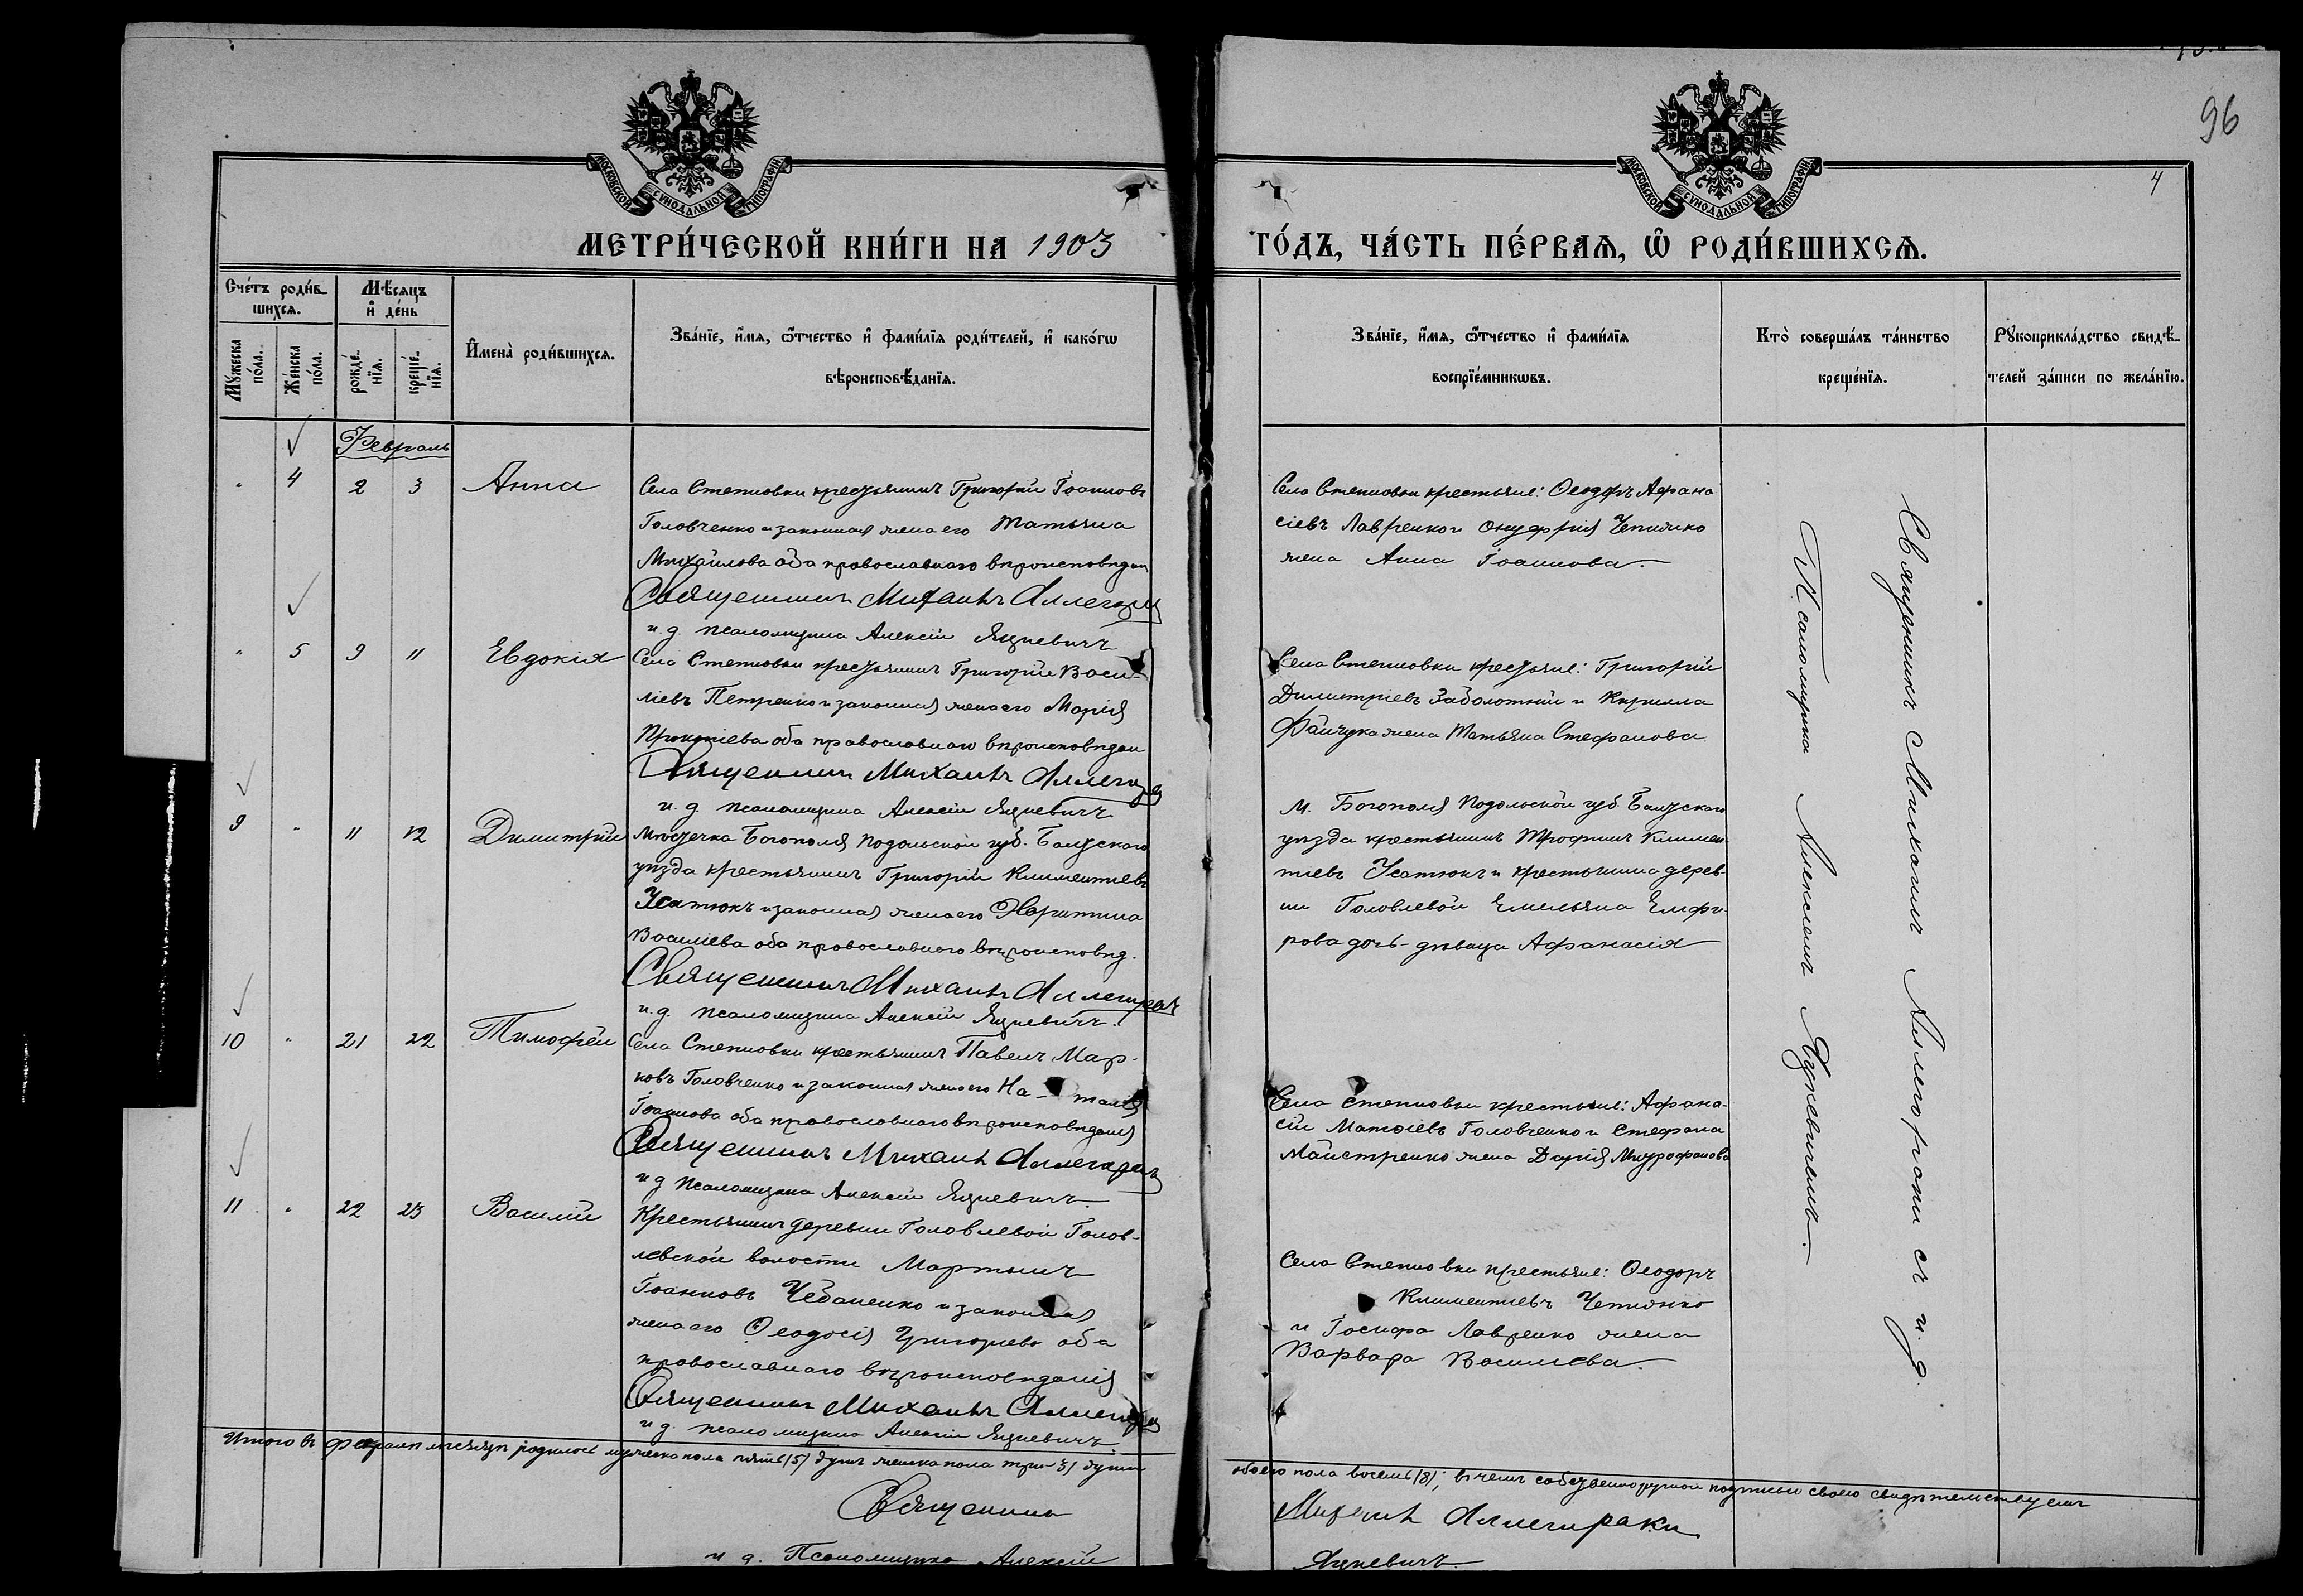 96
4
МОСКОВСКОЙ СѴНОДАЛЬНОЙ ТИПОГРАФІИ
МОСКОВСКОЙ СѴНОДАЛЬНОЙ ТИПОГРАФІИ
МЕТРИ́ЧЕСКОЙ КНИ́ГИ НА 1903
ГО́ДЪ, ЧА́СТЬ ПЕ́РВАѦ, Ѽ РОДИ́ВШИХСѦ.
Сче́тъ роди́в-
шихсѧ.
Мꙋ́жеска по́ла.
Же́нска по́ла.
Мѣ́сѧцъ
и҆ де́нь
рожде́-нїѧ.
креще́-нїѧ.
И҆мена̀ роди́вшихсѧ.
Зва́нїе, и҆́мѧ, ѻ҆́тчество и҆ фами́лїѧ роди́телей, и҆ како́гѡ
вѣроисповѣ́данїѧ.
Зва́нїе, и҆́мѧ, ѻ҆́тчество и҆ фами́лїѧ
воспрїе́мникѡвъ.
Кто̀ соверша́лъ та́инство
креще́нїѧ.
Рꙋкоприкла́дство свидѣ́-
телей за́писи по жела́нїю.
Февраль
4 2 3 Анна
Села Степковки крестьянинъ Григорій Іоанновъ
Головченко и законная жена его Татьяна
Михайлова оба православнаго вѣроисповѣдан
Священникъ Михаилъ
и. д. псаломщика Алексій Яцкевичъ
Села Степковки крестьяне: Ѳеодоръ Афана
сіевъ Лавренко и Онуфрія Чепижко
жена Анна Іоаннова.
5 9 11 Евдокія
Села Степковки крестьянинъ Григорій Васи-
ліевъ Петренко и законная жена его Марія
Прокопіева оба православнаго вѣроисповѣдан
Священникъ Михаилъ
и. д. псаломщика Алексій Яцкевичъ
Села Степковки крестьяне: Григорій
Димитріевъ Заболотный и Кирилла
жена Татьяна Стефанова.
9 11 12 Димитрій
Мѣстечка Богополя Подольской губ. Балтскаго
уѣзда крестьянинъ Григорій Климентіевъ
Усатюкъ и законная жена его Харитина
Василіева оба православнаго вѣроисповѣд.
Священникъ Михаилъ
и. д. псаломщика Алексій Яцкевичъ.
м. Богополя Подольской губ. Балтскаго
уѣзда крестьянинъ Трофимъ Климен
тіевъ Усатюкъ и крестьянина дерев-
ни Головлевой Емельяна
рова дочь-дѣвица Афанасія
10 21 22 Тимофей
Села Степковки крестьянинъ Павелъ Мар-
ковъ Головченко и законная жена его На-талія
Іоаннова оба православнаго вѣроисповѣданія
Священникъ Михаилъ
и д псаломщика Алексій Яцкевичъ
Села Степковки крестьяне: Афана-
сій Матѳіевъ Головченко и Стефана
Майстренко жена Дарія Митрофанова
11 22 23 Василій
Крестьянинъ деревни Головлевой Голов-
левской волости Мартынъ
Іоанновъ Чебаненко и законная
жена его Ѳеодосія Григорьева оба
православнаго вѣроисповѣданія
Священникъ Михаилъ
и д. псаломщика Алексій Яцкевичъ
Села Степковки крестьяне: Ѳеодоръ
Климентіевъ Чепижко
и Іосифа Лавренко жена
Варвара Василіева.
Священникъ Михаилъ съ и. д.
Псаломщика Алексіемъ Яцкевичемъ.
Итого въ февралѣ мѣсяцѣ родилось мужеска пола пять (5) душъ женска пола три (3) души
обоего пола восемь (8); въ чемъ собственноручной подписью своею свидѣтельствуемъ
Священникъ Михаилъ
и д. Псаломщика Алексій Яцкевичъ.